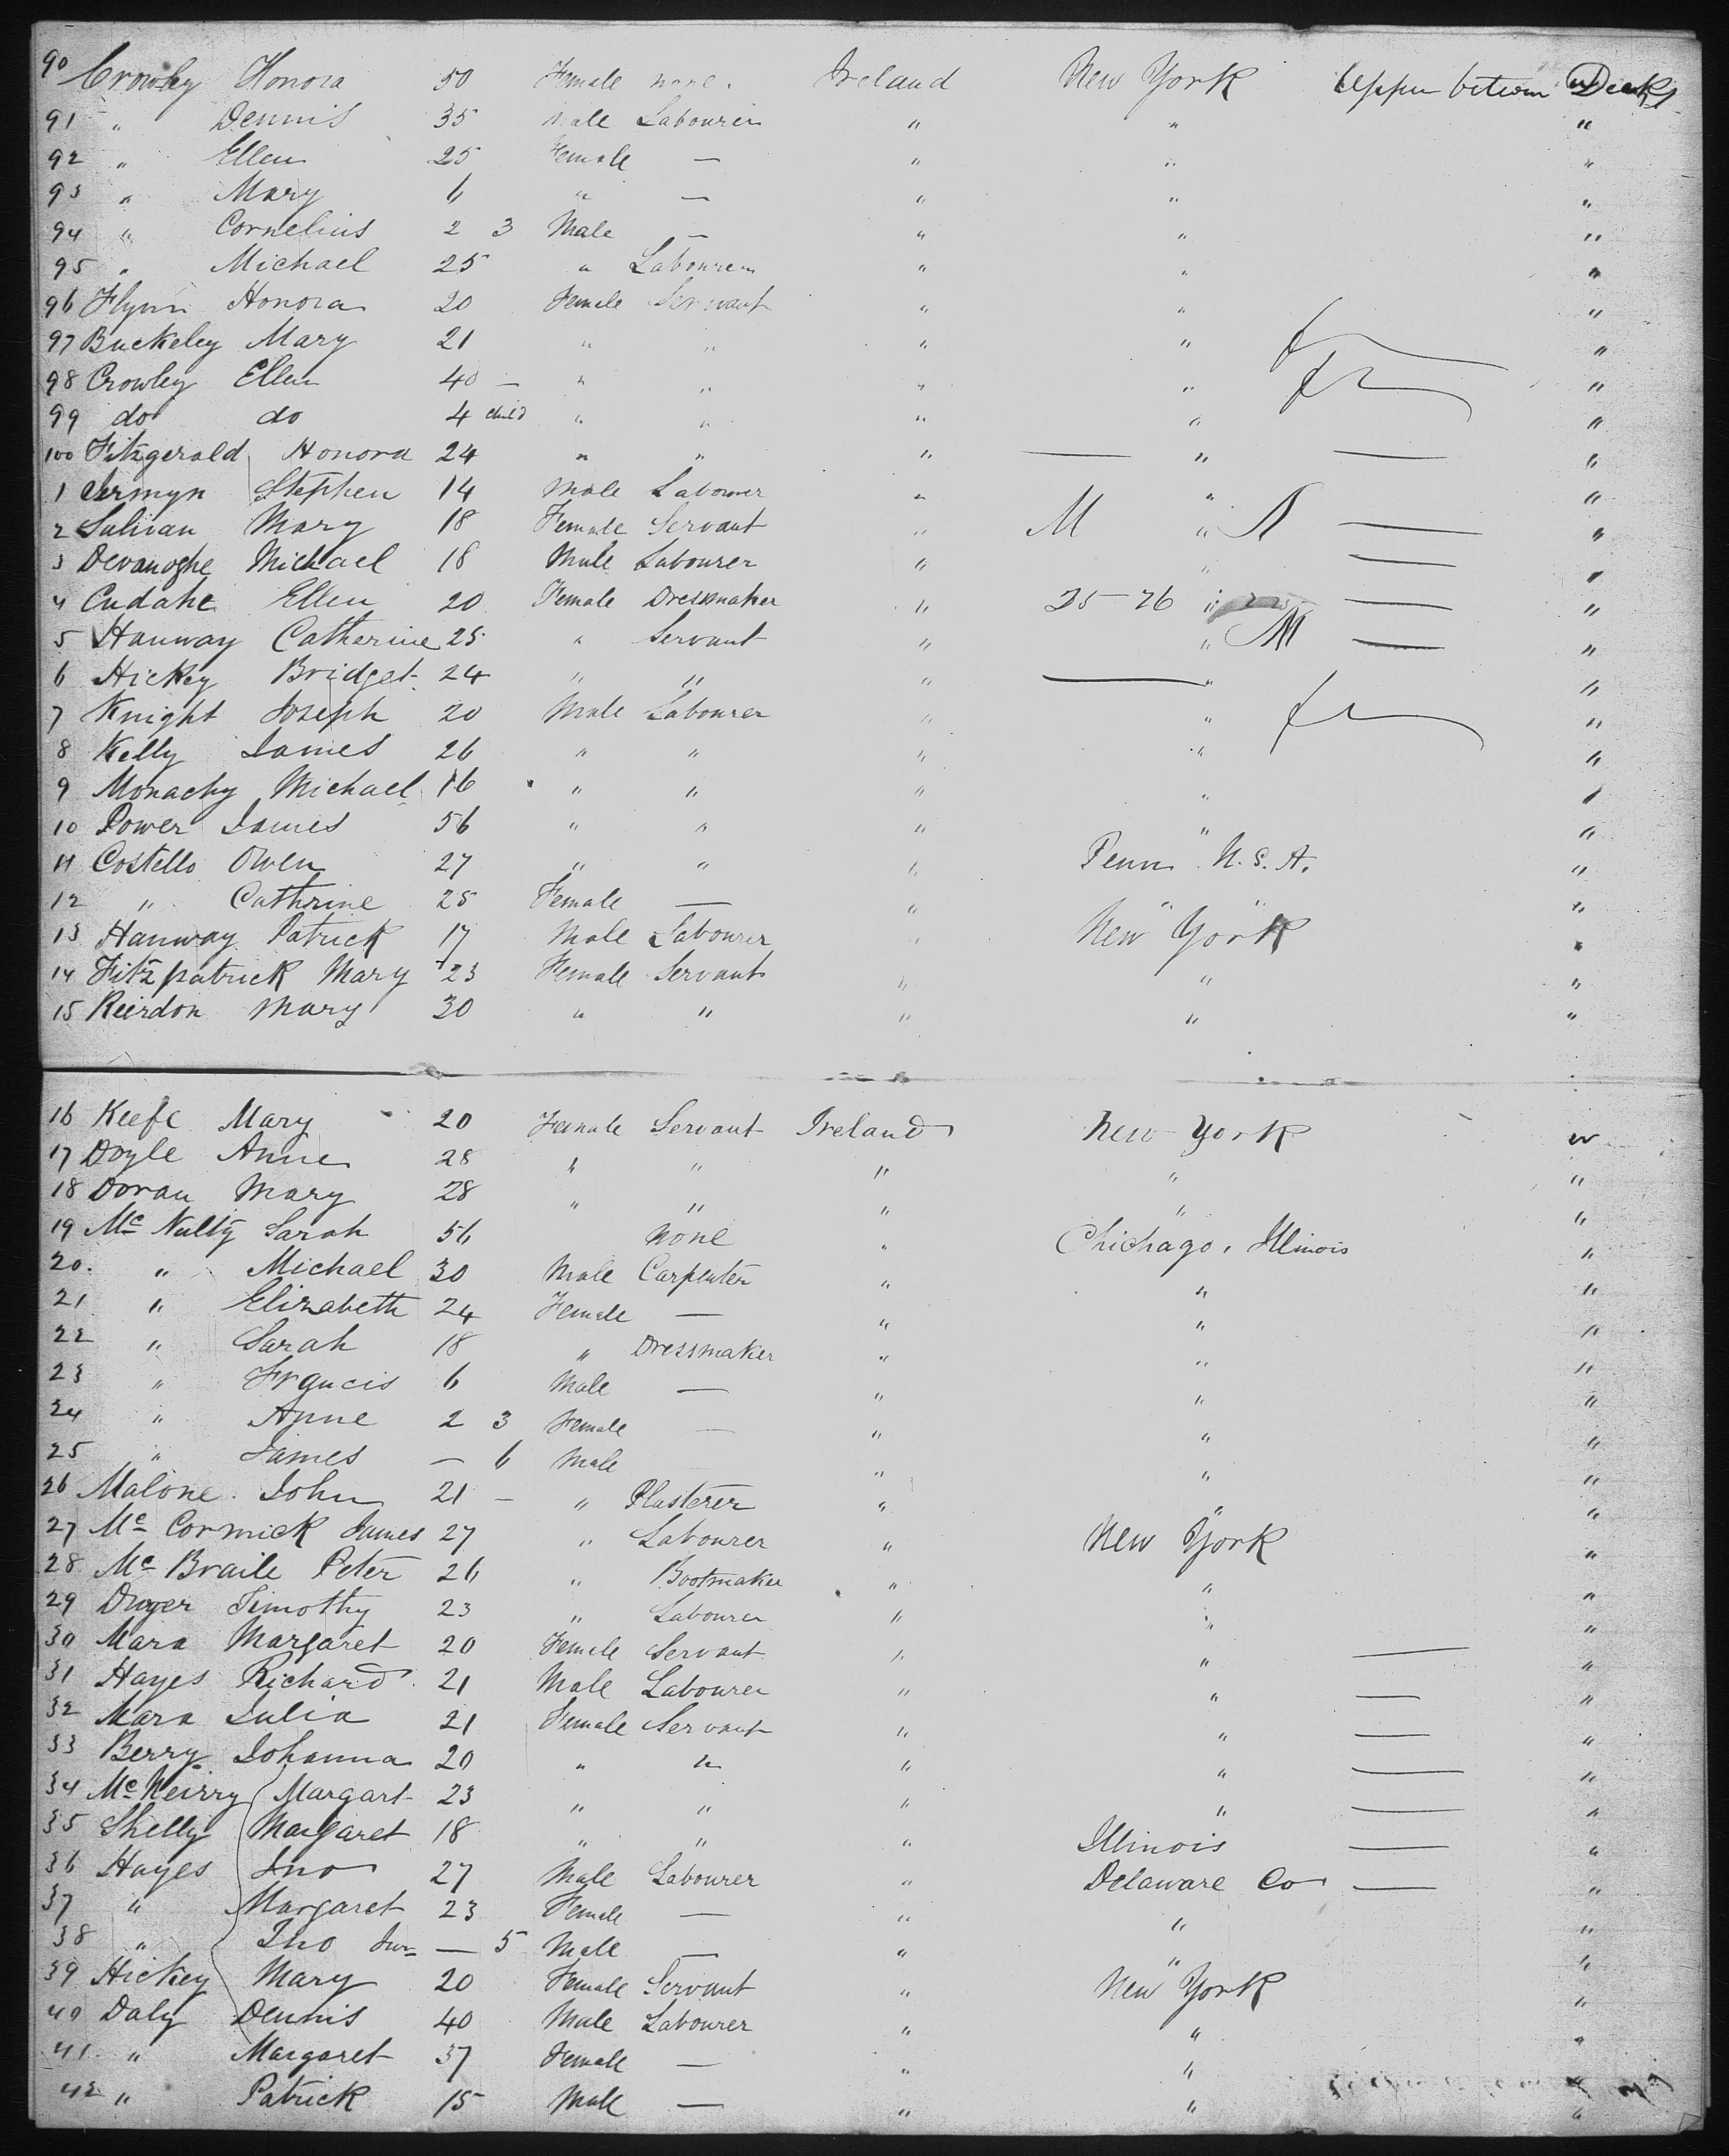 90 Crowley Honora 50 Female none. Ireland New York Upper between Decks
91 " Dennis 35 Male Labourer " " "
92 " Ellen 25 Female — " " "
93 " Mary 6 " — " " "
94 " Cornelius 2 3 Male — " " "
95 " Michael 25 " Labourer " " "
96 Flynn Honora 20 Female Servant " " "
97 Buckeley Mary 21 " " " " "
98 Crowley Ellen 40 — " " " " "
99 do do 4 child " " " " "
100 Fitzgerald Honora 24 " " " — " — "
1 Jermyn Stephen 14 Male Labourer " " "
2 Sulivan Mary 18 Female Servant " M " — "
3 Devanoghe Michael 18 Male Labourer " " — "
4 Cudahe Ellen 20 Female Dressmaker " 25-26 " — "
5 Hanway Catherine 25 " Servant " " M — "
6 Hickey Bridget 24 " " " — " "
7 Knight Joseph 20 Male Labourer " " "
8 Kelly James 26 " " " " "
9 Monachy Michael 16 " " " " "
10 Power James 56 " " " " "
11 Costello Owen 27 " " " Penn U.S.A. "
12 " Cathrine 25 Female — " " " "
13 Hanway Patrick 17 Male Labourer " New York "
14 Fitzpatrick Mary 23 Female Servant " " "
15 Reirdon Mary 30 " " " " "
16 Keefe Mary 20 Female Servant Ireland New York "
17 Doyle Anne 28 " " " " "
18 Doran Mary 28 " " " " "
19 Mc Nulty Sarah 56 " none " Chichago, Illinois "
20. " Michael 30 Male Carpenter " " "
21 " Elizabeth 24 Female — " " "
22 " Sarah 18 " Dressmaker " " "
23 " Francis 6 Male — " " "
24 " Anne 2 3 Female — " " "
25 " James — 6 Male " " "
26 Malone John 21 — " Plasterer " " "
27 Mc Cormick James 27 " Labourer " New York "
28 Mc Braile Peter 26 " Bootmaker " " "
29 Dwyer Timothy 23 " Labourer " " "
30 Mara Margaret 20 Female Servant " " — "
31 Hayes Richard 21 Male Labourer " " — "
32 Mara Julia 21 Female Servant " " — "
33 Berry Johanna 20 " " " " — "
34 Mc Neirry Margart 23 " " " " — "
35 Shelly Margaret 18 " " " Illinois — "
36 Hayes Jno 27 Male Labourer " Delaware Co — "
37 " Margaret 23 Female — " " "
38 " Jno Jun — 5 Male — " " "
39 Hickey Mary 20 Female Servant " New York "
40 Daly Dennis 40 Male Labourer " " "
41 " Margaret 37 Female — " " "
42 " Patrick 15 Male — " " "